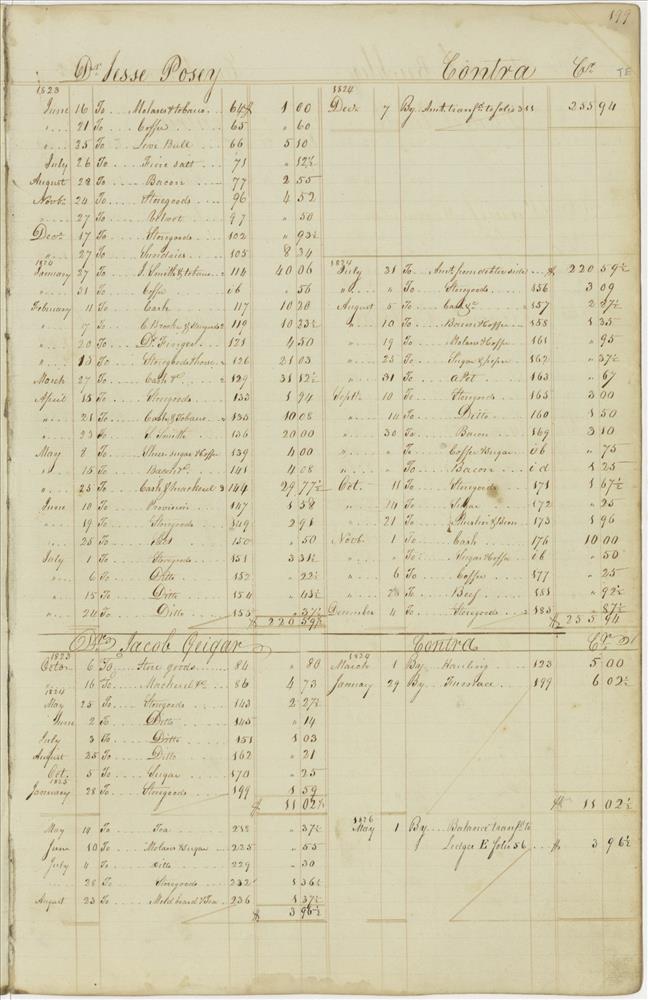 199
Dr. Jesse Posey
1823
June 16 To Molases & tobacco 64 $ 1 00
" 21 To Coffee 65 " 60
" 25 To 66 5 10
July 26 To Fine Salt 71 " 12½
August 28 To Bacon 77 2 55
Novbr 24 To Storegoods 96 4 52
" 27 To 97 " 50
Decr 17 To Storegoods 102 " 93½
" 27 To Sundries 105 8 34
1824
January 27 To J. Smith & tobacco 114 40 06
" 31 To Coffee " 56
February 11 To Cash 117 10 20
" 7 To C. Brooke & Storegoods 119 10 33½
" 20 To Dr. 121 4 50
" 13 To Storegoods 126 21 03
March 27 To Cash &c. 129 31 12½
April 15 To Storegoods 133 1 94
" 21 To Cash & Tobacco 135 10 08
" 23 To J. Smith 136 20 00
May 8 To Shoes sugar & Coffee 139 4 00
" 15 To Bacon &c. 141 4 08
" 25 To Cash & Mackerel 144 29 77½
June 10 To Provision 147 1 58
" 19 To Storegoods 149 2 91
" 25 To 150 " 50
July 1 To Storegoods 151 3 31½
" 6 To Ditto 152 " 22½
" 15 To Ditto 154 " 43½
" 24 To Ditto 155 " 37½
$ 220 59½
Contra Cr.
1824
Decr 7 By Amt. transfd. to folio 311 255 94
1824
July 31 To Amt. from debtor side $ 220 59½
" " To Storegoods 156 3 09
August 5 To Cash &c 157 2 37½
" 10 To Bacon & Coffee 158 1 35
" 19 To Molases & Coffee 161 " 95
" 25 To Sugar & pepper 162 " 37½
" 31 To a Pot 163 " 67
Septr 10 To Storegoods 165 3 00
" 14 To Ditto 160 1 50
" 30 To Bacon 169 3 10
" " To Coffee & Sugar ib " 75
" " To Bacon id 1 25
Oct. 11 To Storegoods 171 1 67½
" 14 To Sugar 172 " 25
" 21 To 173 1 96
Novbr 1 To Cash 176 10 00
" " To Sugar & Coffee ib " 50
" 6 To Coffee 177 " 25
" To Beef 181 " 92½
December 4 To Storegoods 183 " 87½
$ 255 94
Dr. Jacob Geigar
1823
Octor 6 To Store goods 84 " 80
" 16 To Mackerel &c 86 4 73
1824
May 25 To Storegoods 143 2 27½
June 2 To Ditto 145 " 14
July 3 To Ditto 151 1 03
August 25 To Ditto 162 " 21
Oct. 5 To Sugar 170 " 25
1825
January 28 To Storegoods 199 1 59
$ 11 02½
May To Tea " 37½
June 10 To Molases & Sugar 225 " 55
July 4 To Ditto 229 " 30
" 28 To Storegoods 232 1 36½
August 23 To Mold board & Tea 236 1 37½
$ 3 96½
Contra Cr.
1824
March 1 By Hauling 123 5 00
January 29 By Furnace 199 6 02½
$ 11 02½
1826
May 1 By Balance transfd. to
Ledger E folio 56 $ 3 96½